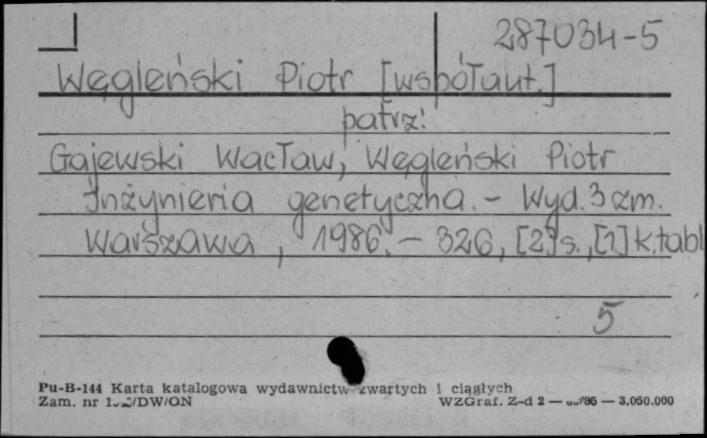 287034-5
Węgleński Piotr [współaut.]
patrz:
Gajewski Wacław, Węgleński Piotr
Inżynieria genetyczna. - Wyd. 3 zm.
Warszawa, 1986. - 326, [2] s., [1] k. tabl
5
Pu-B-144 Karta katalogowa wydawnictw zwartych i ciągłych
Zam. nr /DW/ON WZGraf. Z-d 2 — /86 — 3.050.000